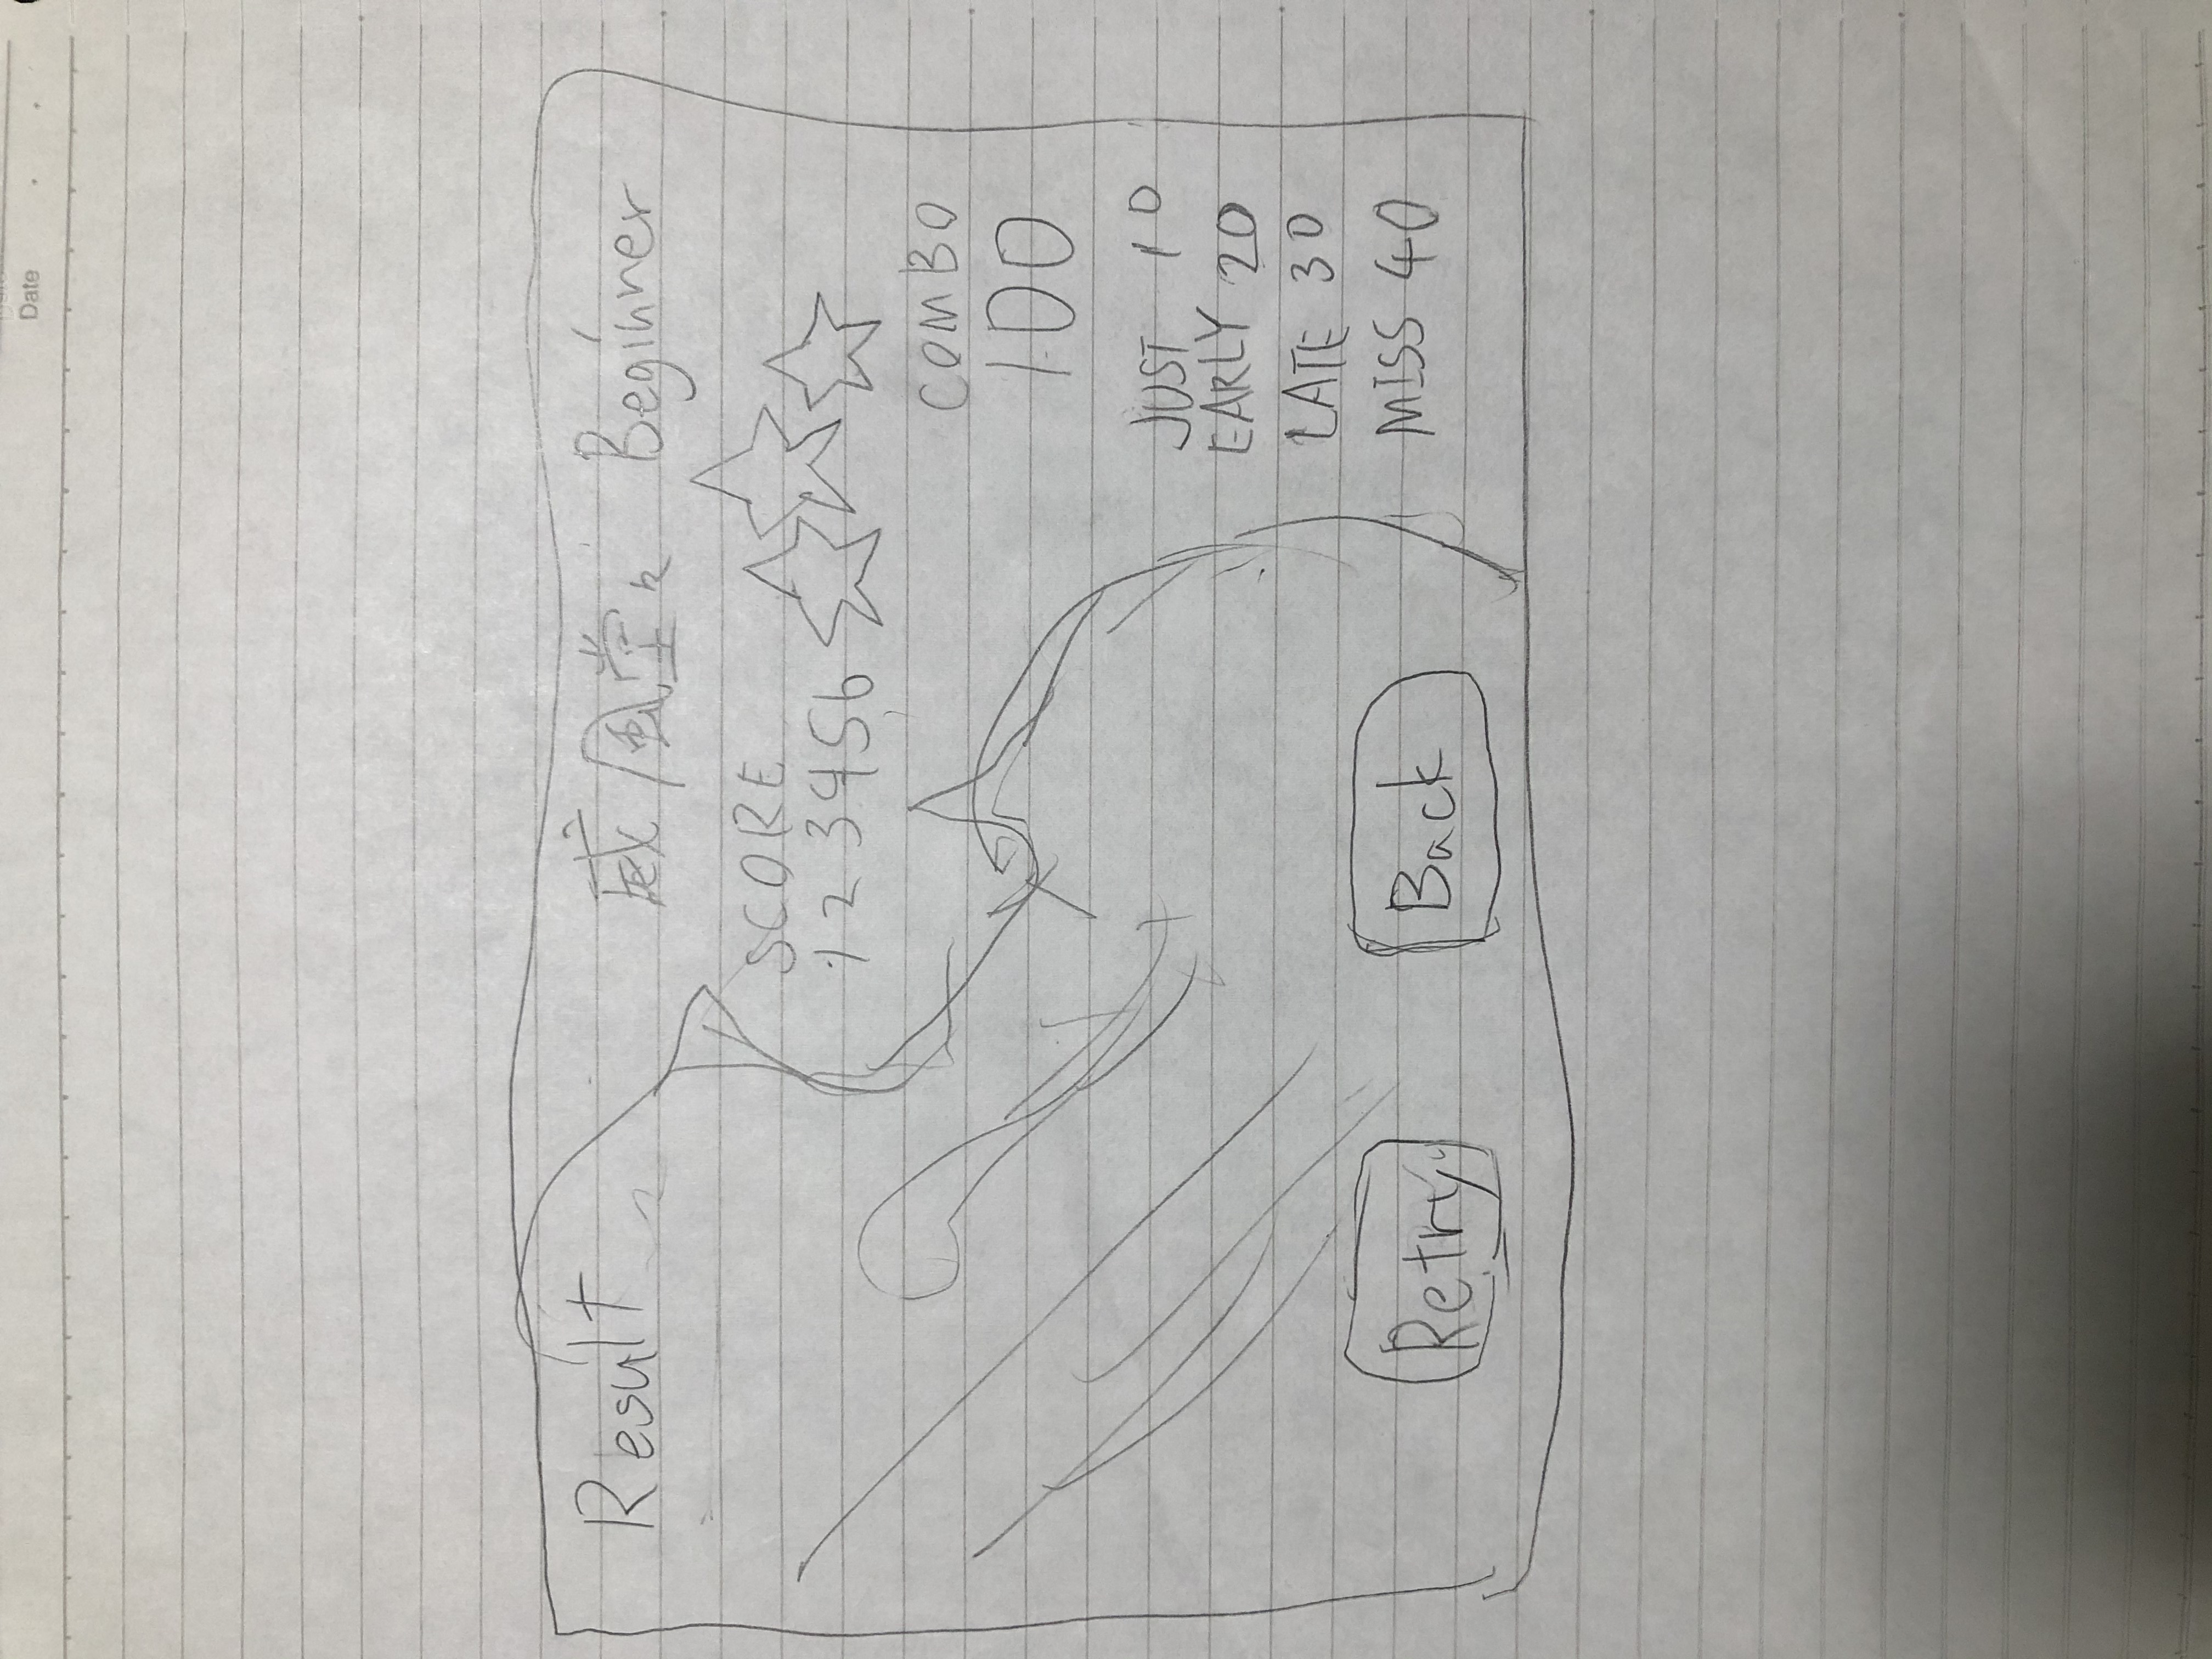 Result 威/風堂々 Beginner
SCORE
123456
COMBO
100
JUST 10
EARLY 20
LATE 30
MISS 40
Retry Back
Date